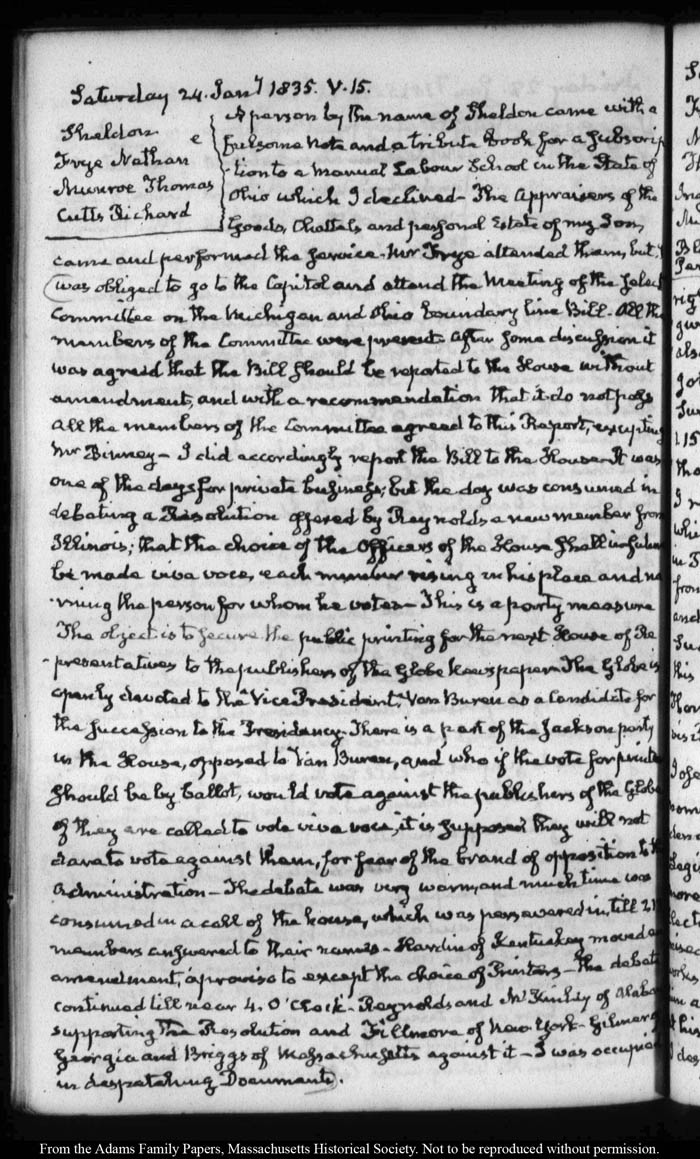 Saturday 24. Jany 1835. V.15.
Sheldon
Frye Nathan
Munroe Thomas
Cutts Richard
A person by the name of Sheldon came with a
fulsome Note and a tribute Book for a subscrip
-tion to a Manual Labour School in the State of
Ohio which I declined– The Appraisers of the
Goods, Chattels and personal Estate of my Son,
came and performed the service. Mr Frye attended them, but
was obliged to go to the Capitol and attend the Meeting of the Select
Committee on the Michigan and Ohio boundary line Bill. All the
members of the Committee were present. After some discussion it
was agreed that the Bill should be reported to the House without
amendment, and with a recommendation that it do not pass
All the members of the Committee agreed to this Report, excepting
Mr Binney– I did accordingly report the Bill to the House. It was
one of the days for private business; but the day was consumed in
debating a Resolution offered by Reynolds a new member from
Illinois; that the choice of the Officers of the House shall in future
be made viva voce, each member rising in his place and na
-ming the person for whom he votes– This is a party measure
The object is to secure the public printing for the next House of Re
-presentatives to the publishers of the Globe Newspaper. The Globe is
openly devoted to the Vice President, Van Buren as a Candidate for
the succession to the Presidency. There is a part of the Jackson party
in the House, opposed to Van Buren, and who if the vote for printer
should be by ballot, would vote against the publishers of the Globe
If they are called to vote viva voce, it is supposed they will not
dare to vote against them, for fear of the brand of opposition to the
Administration– The debate was very warm, and much time was
consumed in a call of the house, which was persevered in, till 21
members answered to their names– Hardin of Kentuckey moved an
amendment, a proviso to except the choice of Printers– The debate
continued till near 4. O'Clock– Reynolds and McKinley of Alaba
supporting the Resolution and Fillmore of New York– Gilmer of
Georgia and Briggs of Massachusetts against it– I was occupied
in despatching Documents.
From the Adams Family Papers, Massachusetts Historical Society. Not to be reproduced without permission.